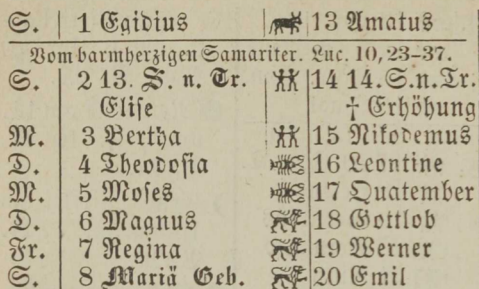 S. 1 Egidius 13 Amatus
Vom barmherzigen Samariter. Luc. 10, 23–37.
S. 2 13. S. n. Tr. 14 14. S. n. Tr.
Elise † Erhöhung
M. 3 Bertha 15 Nikodemus
D. 4 Theodosia 16 Leontine
M. 5 Moses 17 Quatember
D. 6 Magnus 18 Gottlob
Fr. 7 Regina 19 Werner
S. 8 Mariä Geb. 20 Emil